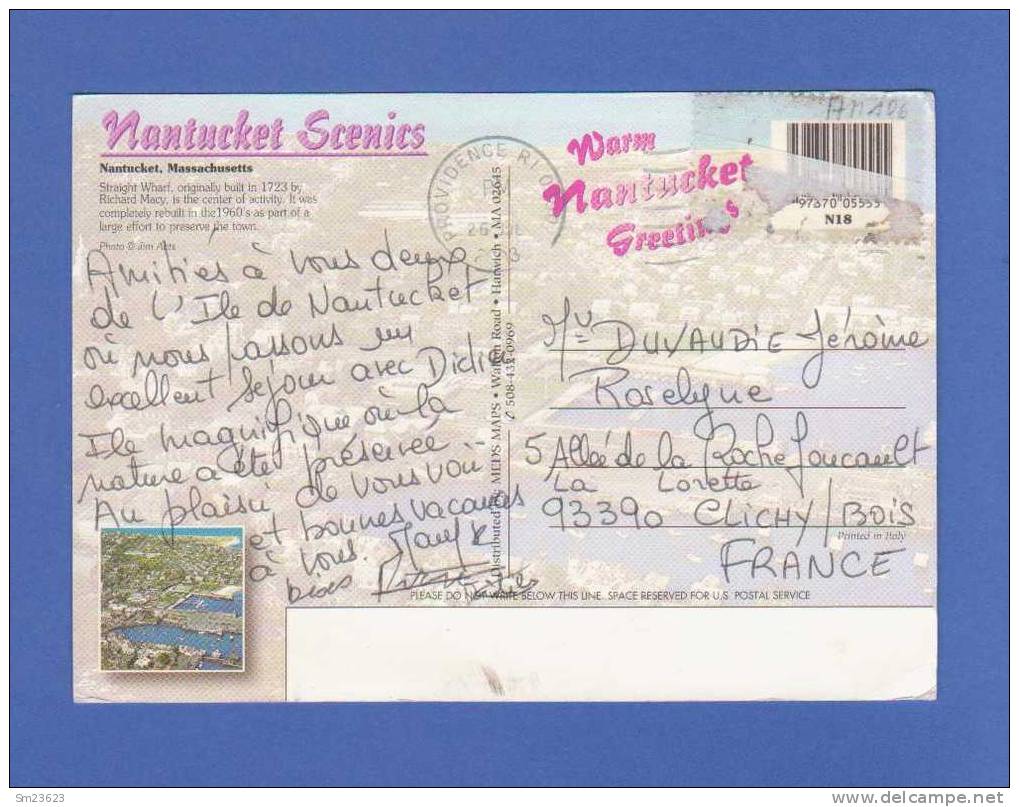 Nantucket Scenics
Nantucket, Massachusetts
Straight Wharf, originally built in 1723 by
Richard Macy, is the center of activity. It was
completely rebuilt in the 1960's as part of a
large effort to preserve the town.
Photo © Jim
Amitiés à vous deux
de L'Ile de Nantucket
où nous passons un
excellent sejour avec Didier
Ile magnifique où la
nature a été préservée.
Au plaisir de vous voir
et bonnes vacances
à vous.
bises
PROVIDENCE RI
PM
26
Distributed by MEDS MAPS • Road • Harwich • MA 02645
508-432-0969
Warm
Nantucket
Greetings
AM 106
97370 05553
N18
DUVAUDIE Jérôme
Roselyne
5 Allée de la Roche Foucault
La Lorette
93390 CLICHY/BOIS
Printed in Italy
FRANCE
PLEASE DO NOT WRITE BELOW THIS LINE. SPACE RESERVED FOR U.S. POSTAL SERVICE
Sm23623
DELCAMPE.NET